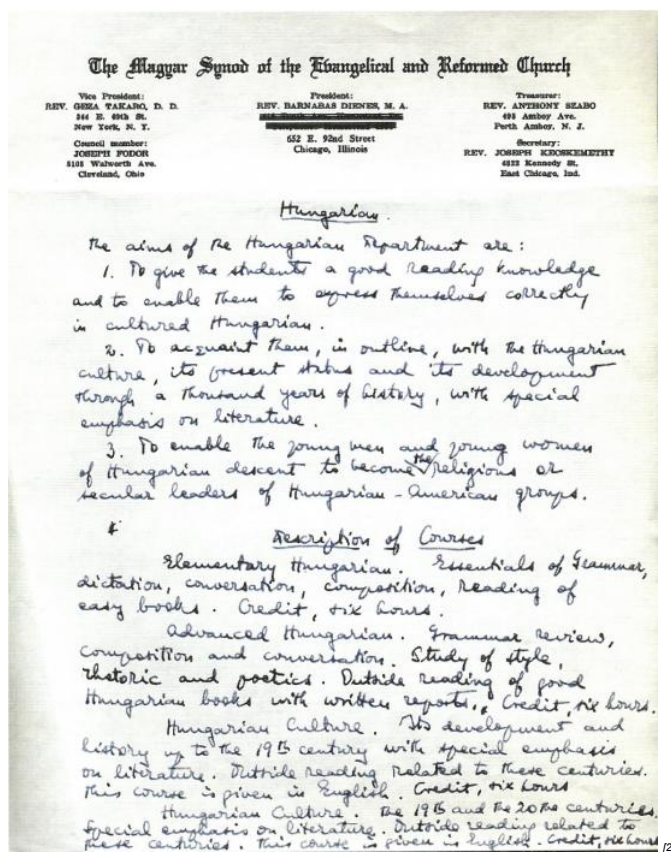 The Magyar Synod of the Evangelical and Reformed Church
Vice President:
REV. GEZA TAKARO, D. D.
344 E. 49th St.
New York, N. Y.
Council member:
JOSEPH FODOR
5103 Walworth Ave.
Cleveland, Ohio
President:
REV. BARNABAS DIENES, M. A.
652 E. 92nd Street
Chicago, Illinois
Treasurer:
REV. ANTHONY SZABO
495 Amboy Ave.
Perth Amboy, N. J.
Secretary:
REV. JOSEPH KECSKEMETHY
4822 Kennedy St.
East Chicago, Ind.
Hungarian.
The aims of the Hungarian Department are:
1. To give the students a good reading knowledge
and to enable them to express themselves correctly
in cultured Hungarian.
2. To acquaint them, in outline, with the Hungarian
culture, its present status and its development
through a thousand years of history, with special
emphasis on literature.
3. To enable the young men and young women
of Hungarian descent to become the religious or
secular leaders of Hungarian-American groups.
Description of Courses
Elementary Hungarian. Essentials of Grammar,
dictation, conversation, composition, reading of
easy books. Credit, six hours.
Advanced Hungarian. Grammar review,
composition and conversation. Study of style,
rhetoric and poetics. Outside reading of good
Hungarian books with written reports. Credit, six hours.
Hungarian Culture. Its development and
history up to the 19th century with special emphasis
on literature. Outside reading related to these centuries.
This course is given in English. Credit, six hours
Hungarian Culture. The 19th and the 20the centuries.
Special emphasis on literature. Outside reading related to
these centuries. This course is given in English. Credit, six hours